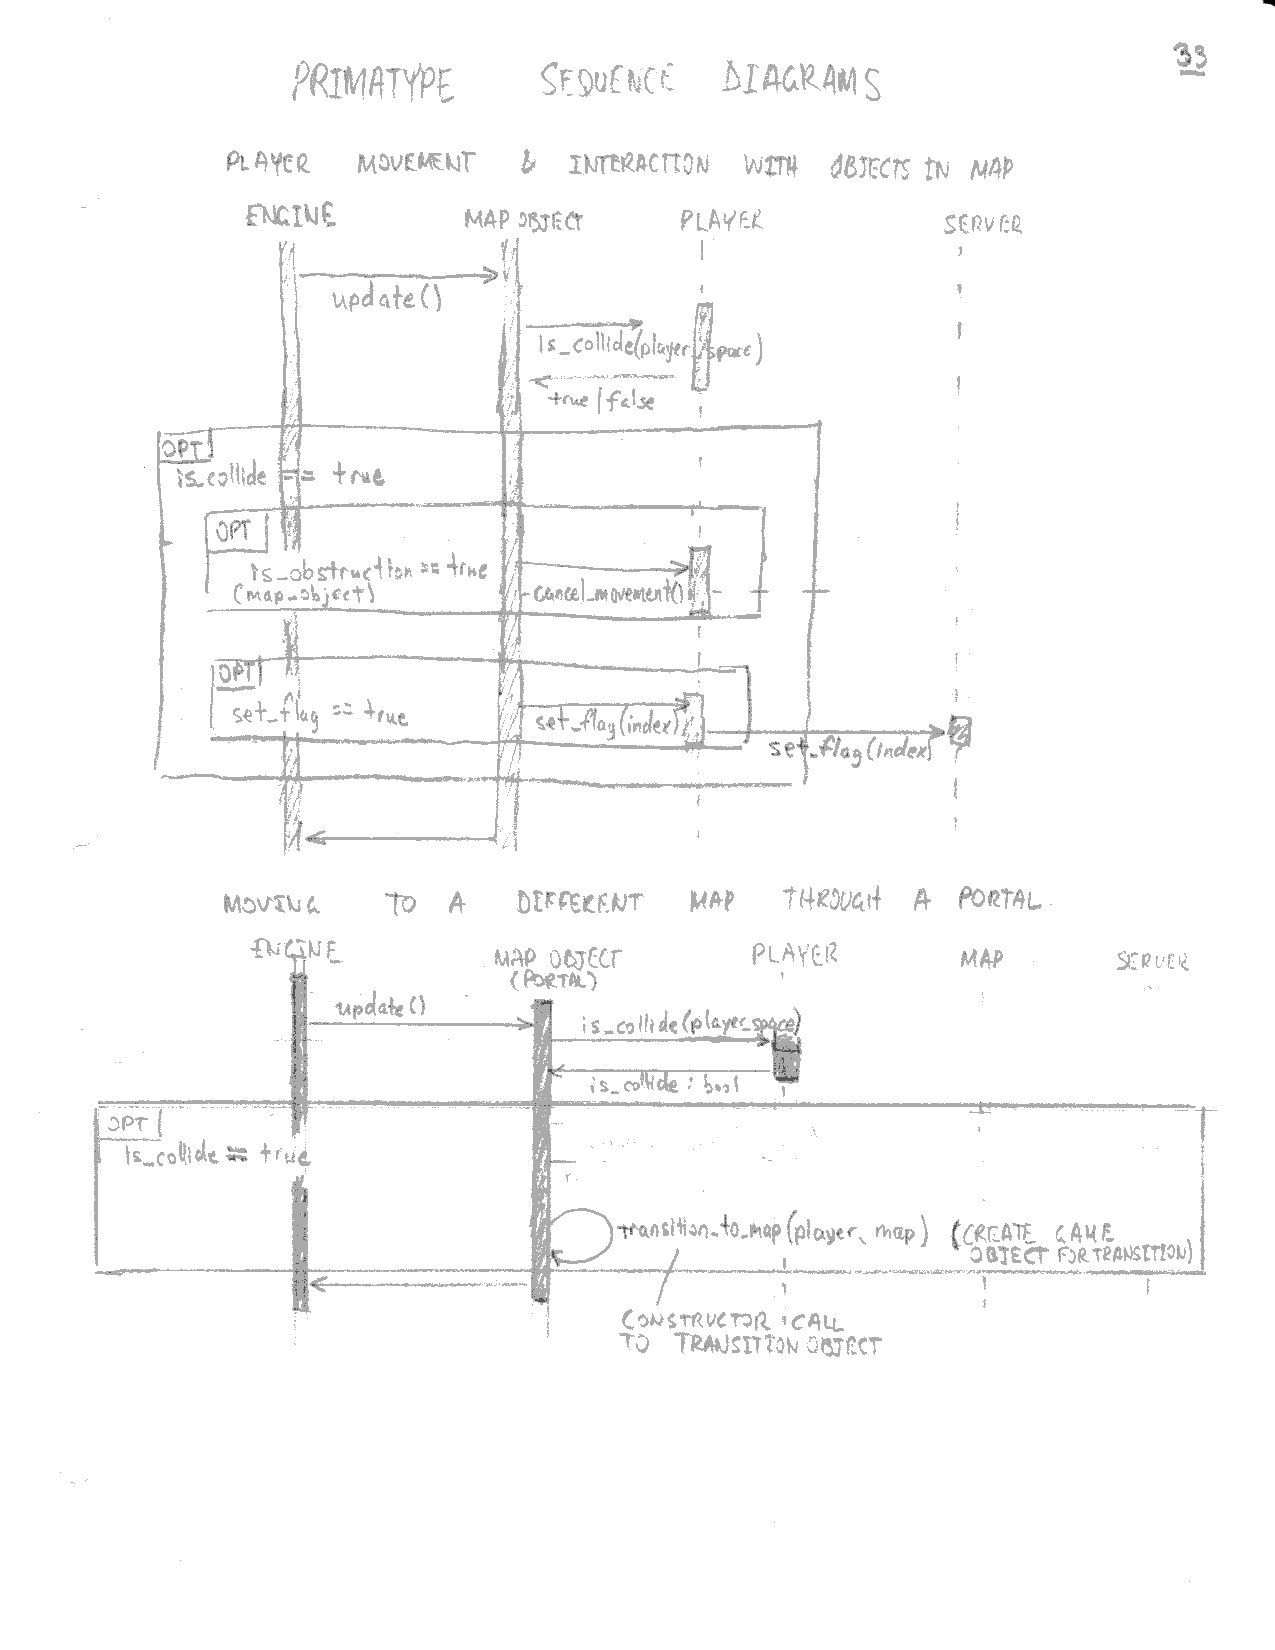 33
PRIMATYPE SEQUENCE DIAGRAMS
PLAYER MOVEMENT & INTERACTION WITH OBJECTS IN MAP
ENGINE MAP OBJECT PLAYER SERVER
update()
is_collide(player_space)
true/false
OPT
is_collide == true
OPT
is_obstruction == true
(map_object)
cancel_movement()
OPT
set_flag == true
set_flag(index)
set_flag(index)
MOVING TO A DIFFERENT MAP THROUGH A PORTAL
ENGINE MAP OBJECT PLAYER MAP SERVER
(PORTAL)
update()
is_collide(player_space)
is_collide : bool
OPT
is_collide == true
transition_to_map(player, map) (CREATE GAME
OBJECT FOR TRANSITION)
CONSTRUCTOR CALL
TO TRANSITION OBJECT